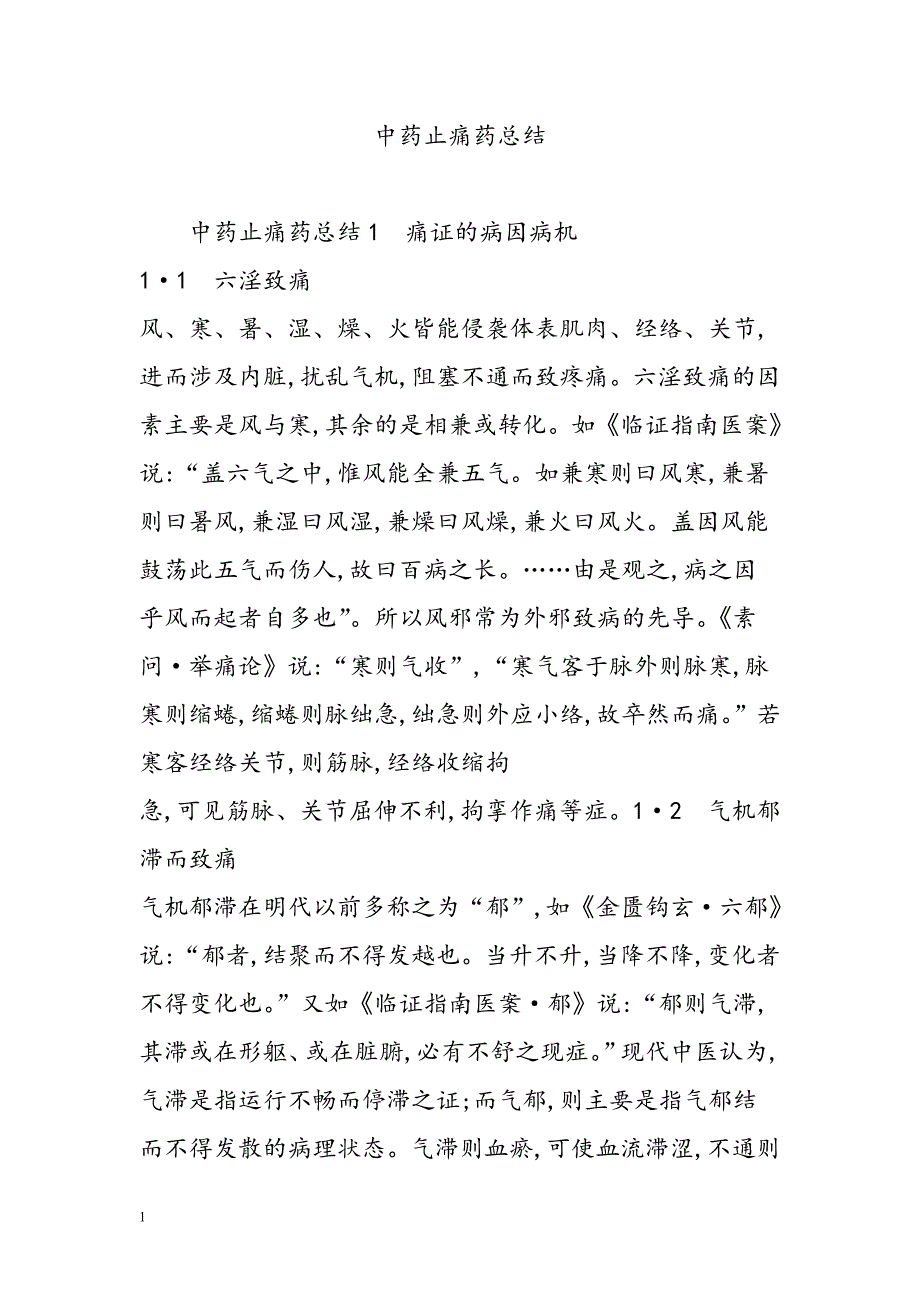 中药止痛药总结
中药止痛药总结1　痛证的病因病机
1·1　六淫致痛
风、寒、暑、湿、燥、火皆能侵袭体表肌肉、经络、关节,
进而涉及内脏,扰乱气机,阻塞不通而致疼痛。六淫致痛的因
素主要是风与寒,其余的是相兼或转化。如《临证指南医案》
说:“盖六气之中,惟风能全兼五气。如兼寒则曰风寒,兼暑
则曰暑风,兼湿曰风湿,兼燥曰风燥,兼火曰风火。盖因风能
鼓荡此五气而伤人,故曰百病之长。……由是观之,病之因
乎风而起者自多也”。所以风邪常为外邪致病的先导。《素
问·举痛论》说:“寒则气收”,“寒气客于脉外则脉寒,脉
寒则缩蜷,缩蜷则脉绌急,绌急则外应小络,故卒然而痛。”若
寒客经络关节,则筋脉,经络收缩拘
急,可见筋脉、关节屈伸不利,拘挛作痛等症。1·2　气机郁
滞而致痛
气机郁滞在明代以前多称之为“郁”,如《金匮钩玄·六郁》
说:“郁者,结聚而不得发越也。当升不升,当降不降,变化者
不得变化也。”又如《临证指南医案·郁》说:“郁则气滞,
其滞或在形躯、或在脏腑,必有不舒之现症。”现代中医认为,
气滞是指运行不畅而停滞之证;而气郁,则主要是指气郁结
而不得发散的病理状态。气滞则血瘀,可使血流滞涩,不通则
1